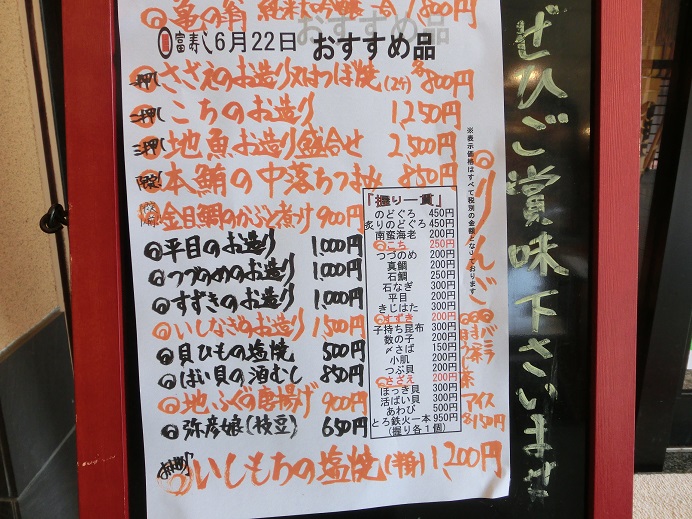 ㊝亀の翁 純米大吟醸 冷 1,800円
富寿し6月22日 おすすめ品
一押し さざえのお造り又はつぼ焼(2ケ)各800円
二押し こちのお造り 1,250円
三押し 地魚お造り盛合せ 2,500円
限定 本鮪の中落ちつまみ 850円
金目鯛のかぶと煮付 900円
平目のお造り 1,000円
つづのめのお造り 1,000円
すずきのお造り 1,000円
いしなぎのお造り 1,500円
貝ひもの塩焼 500円
ばい貝の酒むし 850円
地ふぐの唐揚げ 900円
弥彦娘(枝豆) 650円
いしもちの塩焼 1,200円
「握り一貫」
のどぐろ 450円
炙りのどぐろ 450円
南蛮海老 200円
こち 250円
つづのめ 200円
真鯛 200円
石鯛 250円
石なぎ 300円
平目 200円
きじはた 300円
すずき 200円
子持ち昆布 300円
数の子 200円
〆さば 150円
小肌 200円
つぶ貝 200円
さざえ 200円
ほっき貝 300円
活ばい貝 300円
あわび 500円
とろ鉄火一本 950円
(握り各1個)
※表示価格はすべて税別の金額となっております
りんご
バニラ
ほうじ茶
アイス
各150円
ぜひご賞味下さいませ